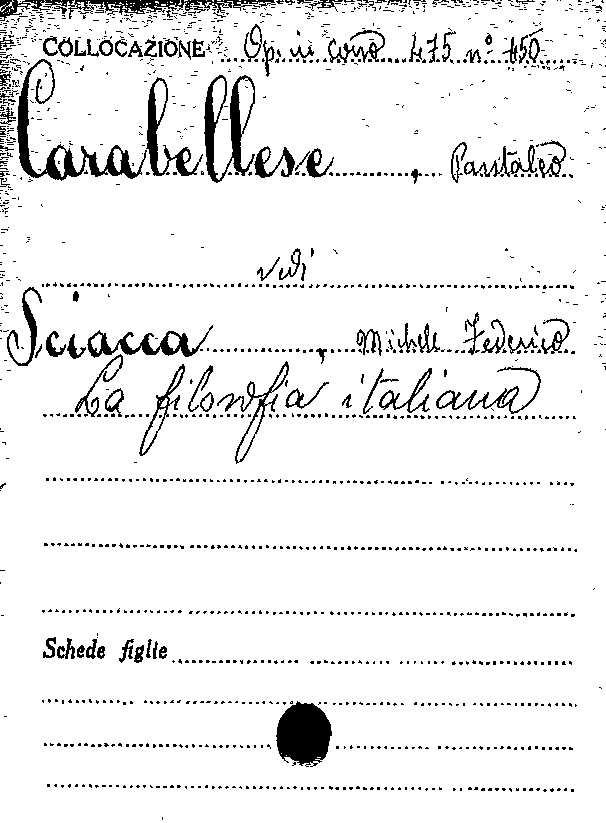 COLLOCAZIONE Op. in corso 475 n° 150
Carabellese, Pantaleo
vedi
Sciacca, Michele Federico
La filosofia italiana
Schede figlie